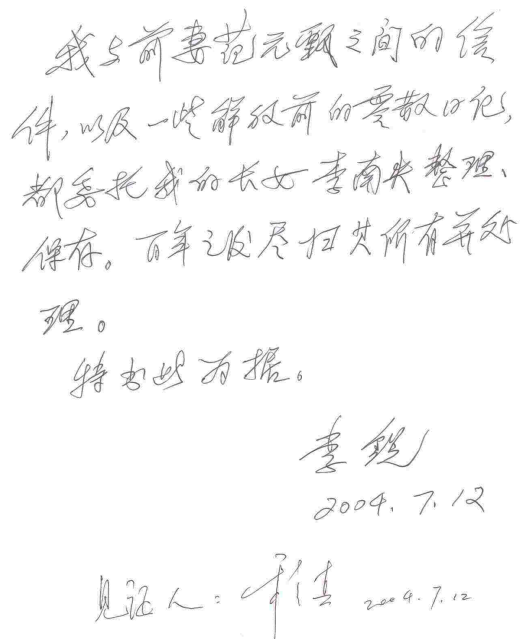 我与前妻范元甄之间的信
件，以及一些解放前的零散日记，
都委托我的长女李南央整理、
保存。百年之后尽归其所有并处
理。
特书此为据。
李锐
2004.7.12
见证人： 2004.7.12